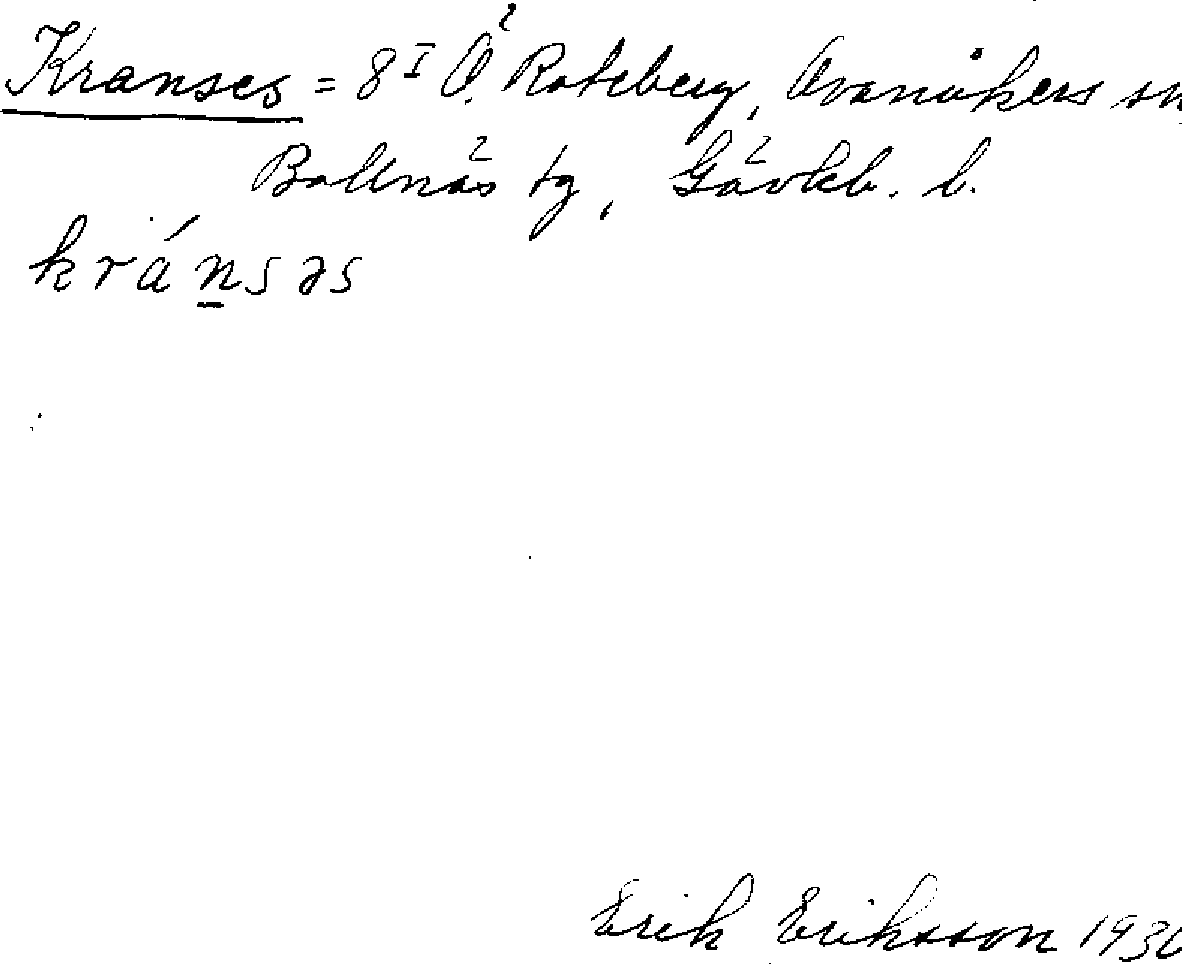 Kranses = 8 I Ö. Roteberg, Ovanåkers sn,
Bollnäs tg, Gävleb. l.
kránsəs
Erik Eriksson 193